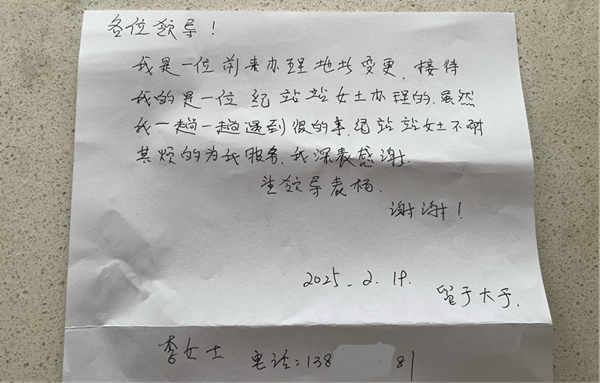 各位领导！
我是一位前来办理地址变更，接待
我的是一位纪站站女士办理的，虽然
我一趟一趟遇到很的事，纪站站女士不耐
其烦的为我服务，我深表感谢.
望领导表杨.
谢谢！
2025.2.19.
留于大于.
李女士 电话：138 81